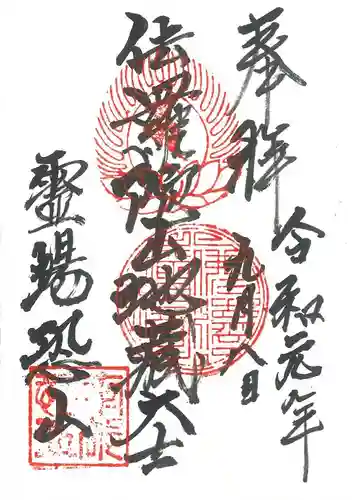 奉拝
令和元年
九月八日
伽羅陀山地蔵大士
霊場恐山